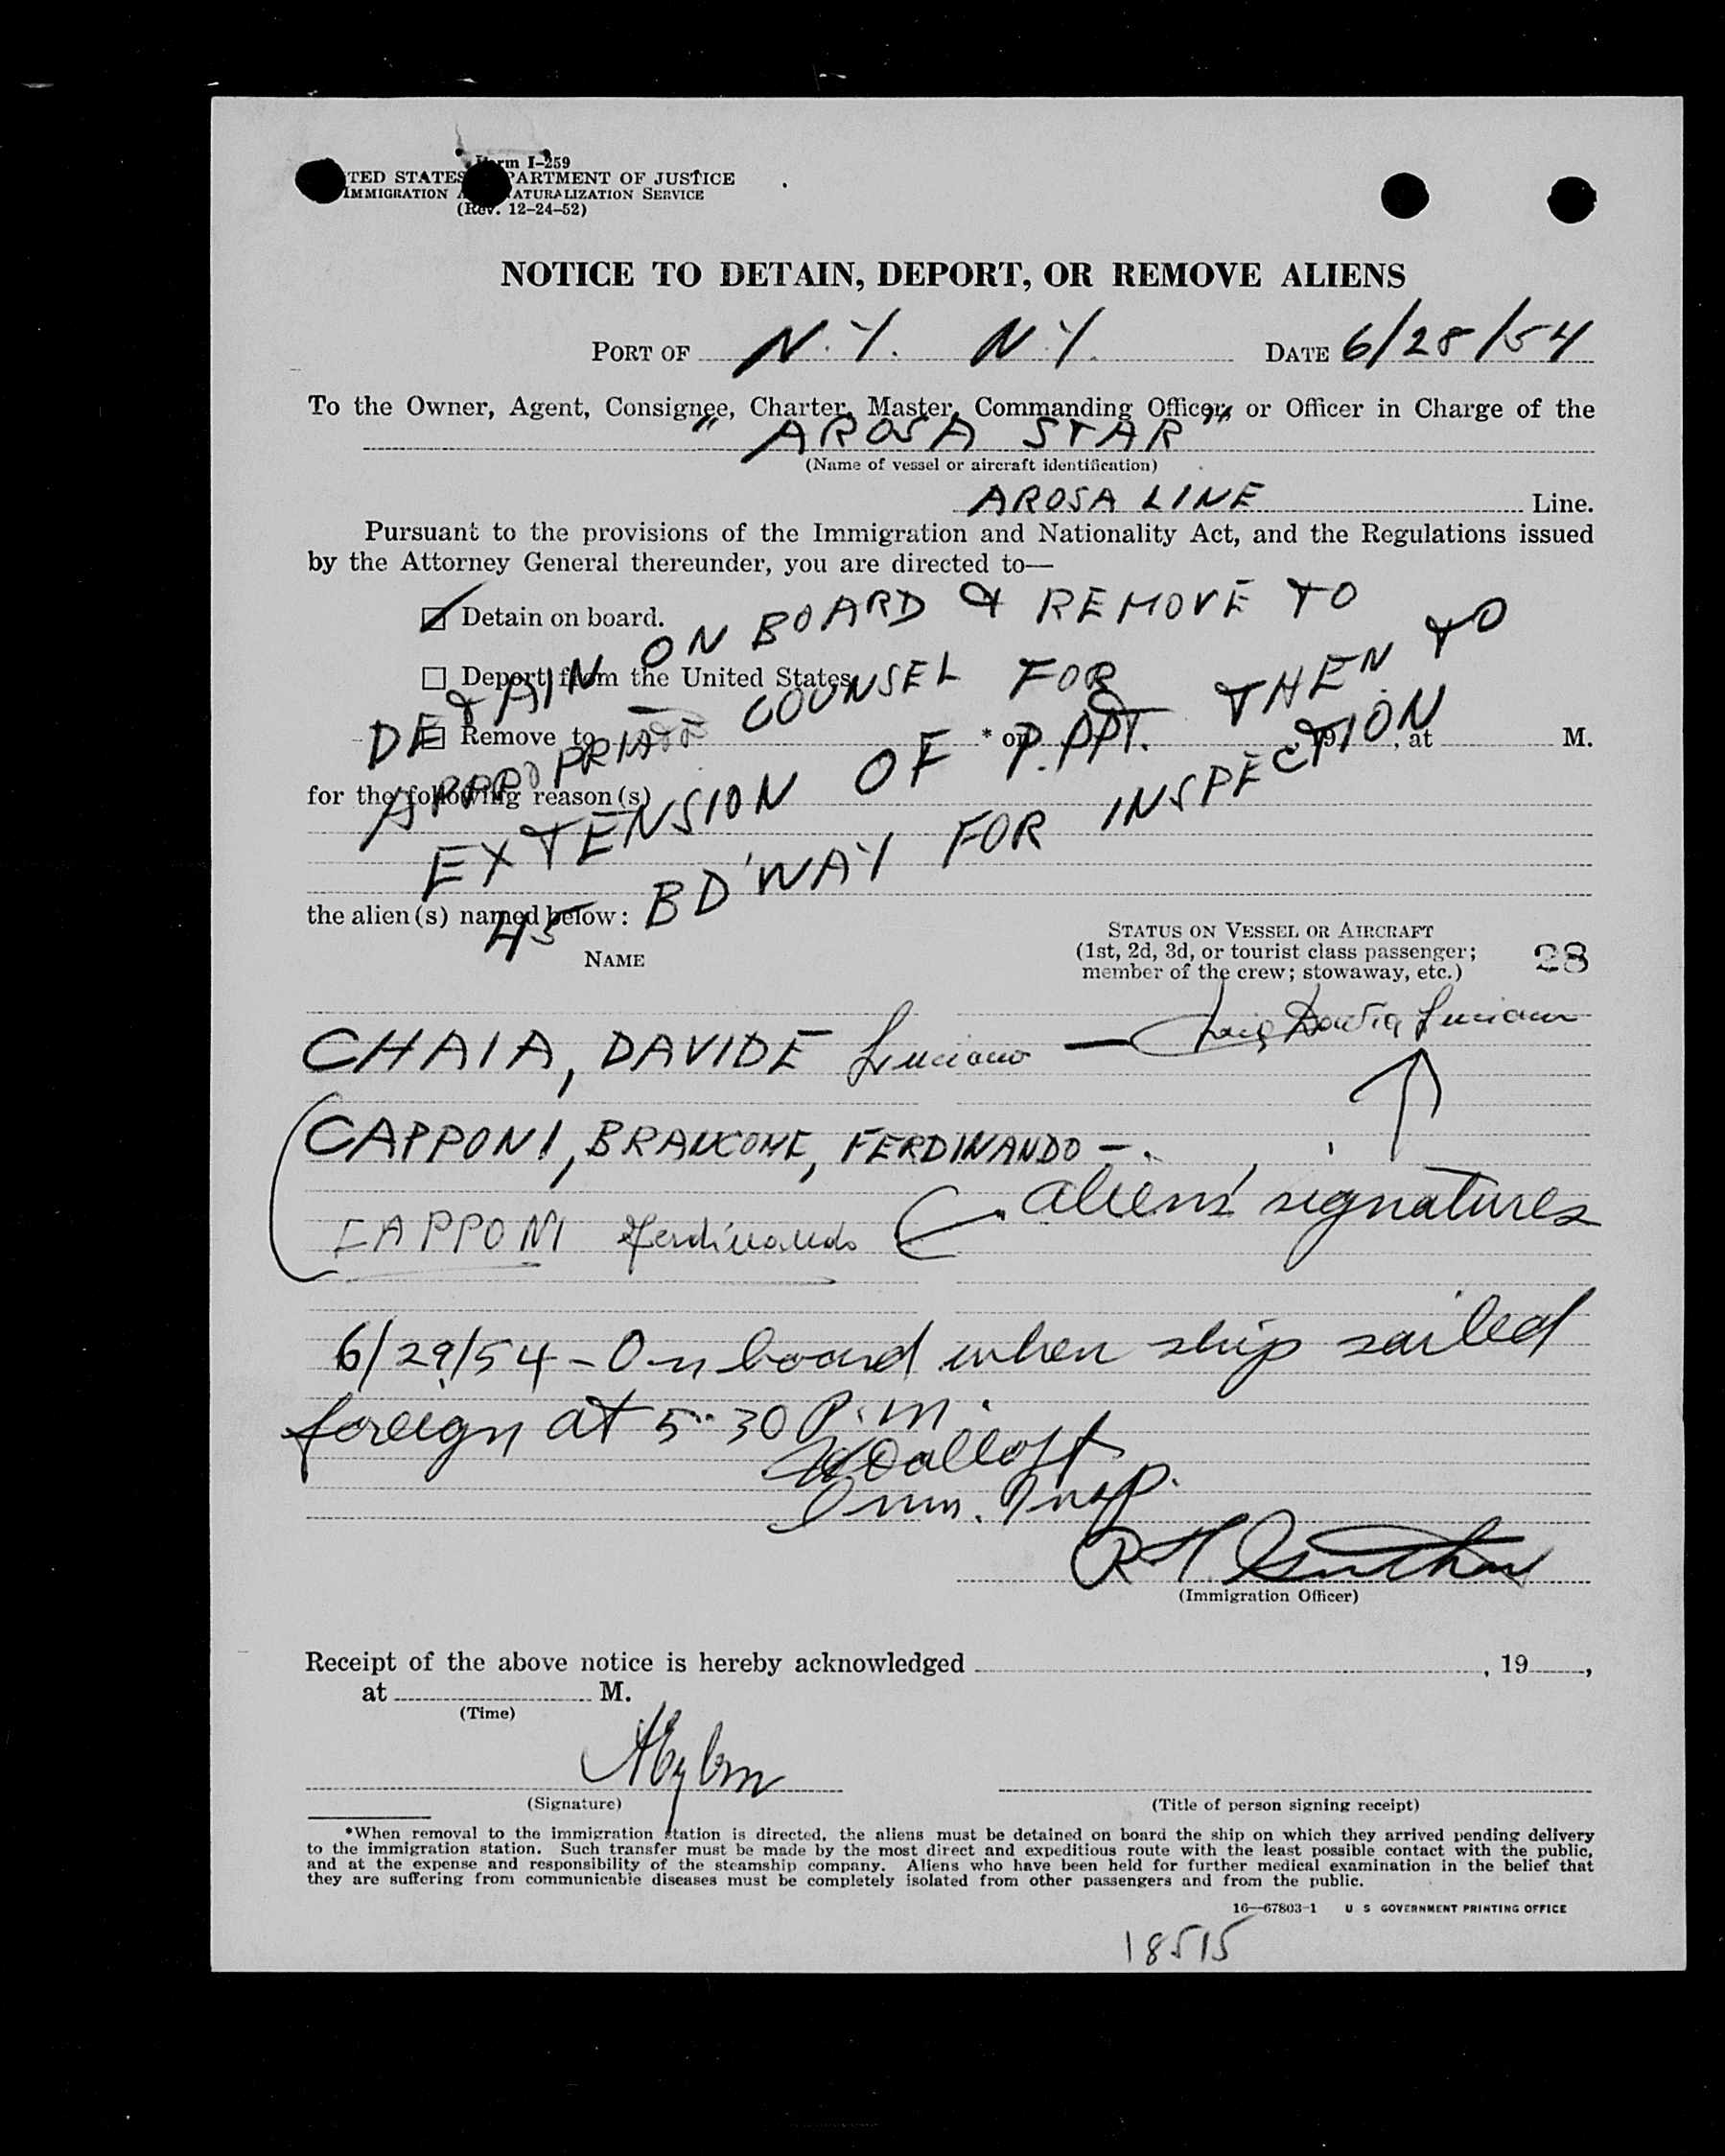 Form I-259
TED STATES PARTMENT OF JUSTICE
IMMIGRATION NATURALIZATION SERVICE
(Rev. 12-24-52)
NOTICE TO DETAIN, DEPORT, OR REMOVE ALIENS
PORT OF N.Y. N.Y. DATE 6/28/54
To the Owner, Agent, Consignee, Charter, Master, Commanding Officer, or Officer in Charge of the
"AROSA STAR"
(Name of vessel or aircraft identification)
AROSA LINE Line.
Pursuant to the provisions of the Immigration and Nationality Act, and the Regulations issued
by the Attorney General thereunder, you are directed to—
Detain on board.
Deport from the United States
Remove to * on 19, at M.
for the following reason(s)
DETAIN ON BOARD & REMOVE TO
APPROPRIATE COUNSEL FOR
EXTENSION OF P.PPT. THEN TO
45 BD'WAY FOR INSPECTION
the alien(s) named below:
NAME
STATUS ON VESSEL OR AIRCRAFT
(1st, 2d, 3d, or tourist class passenger;
member of the crew; stowaway, etc.)
28
CHAIA, DAVIDE Luciano — Luciano
CAPPONI, BRANCONE, FERDINANDO -
CAPPONI Ferdinando
aliens' signatures
6/29/54 - On board when ship sailed
foreign at 5:30 P.m.
Imm. Insp.
(Immigration Officer)
Receipt of the above notice is hereby acknowledged , 19,
at M.
(Time)
(Signature)
(Title of person signing receipt)
*When removal to the immigration station is directed, the aliens must be detained on board the ship on which they arrived pending delivery
to the immigration station. Such transfer must be made by the most direct and expeditious route with the least possible contact with the public,
and at the expense and responsibility of the steamship company. Aliens who have been held for further medical examination in the belief that
they are suffering from communicable diseases must be completely isolated from other passengers and from the public.
16—67803-1 U S GOVERNMENT PRINTING OFFICE
18515